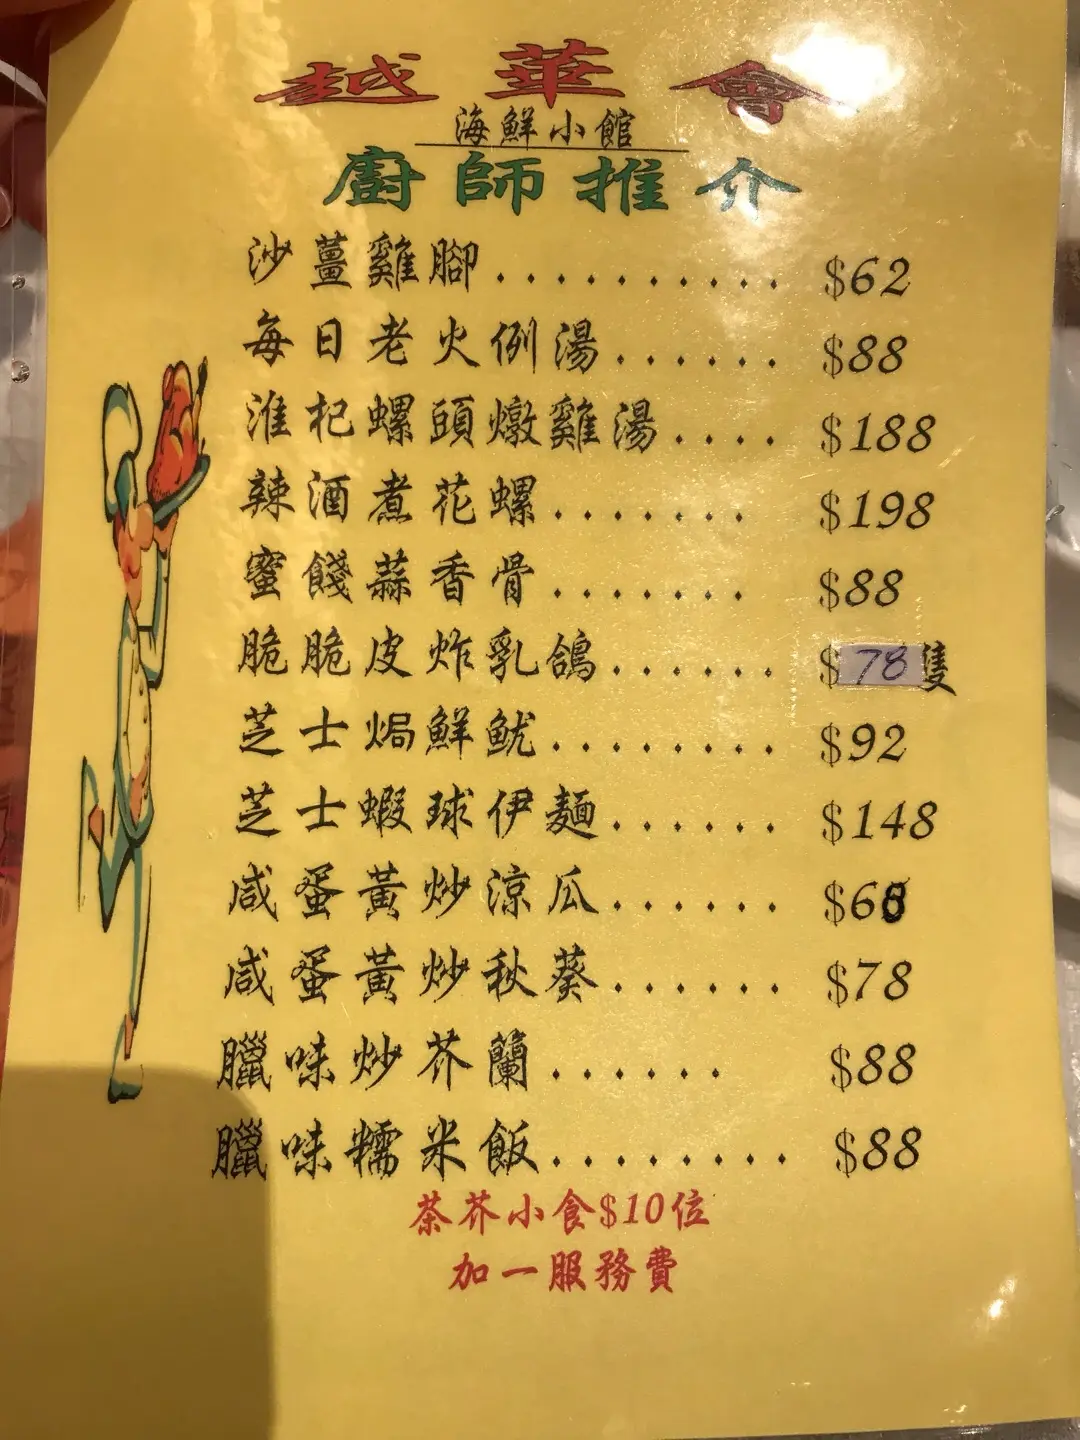 越華會
海鮮小館
廚師推介
沙薑雞腳.......... $62
每日老火例湯...... $88
淮杞螺頭燉雞湯.... $188
辣酒煮花螺....... $198
蜜餞蒜香骨....... $88
脆脆皮炸乳鴿...... $78隻
芝士焗鮮魷........ $92
芝士蝦球伊麵...... $148
咸蛋黃炒涼瓜...... $68
咸蛋黃炒秋葵...... $78
臘味炒芥蘭...... $88
臘味糯米飯......... $88
茶芥小食$10位
加一服務費